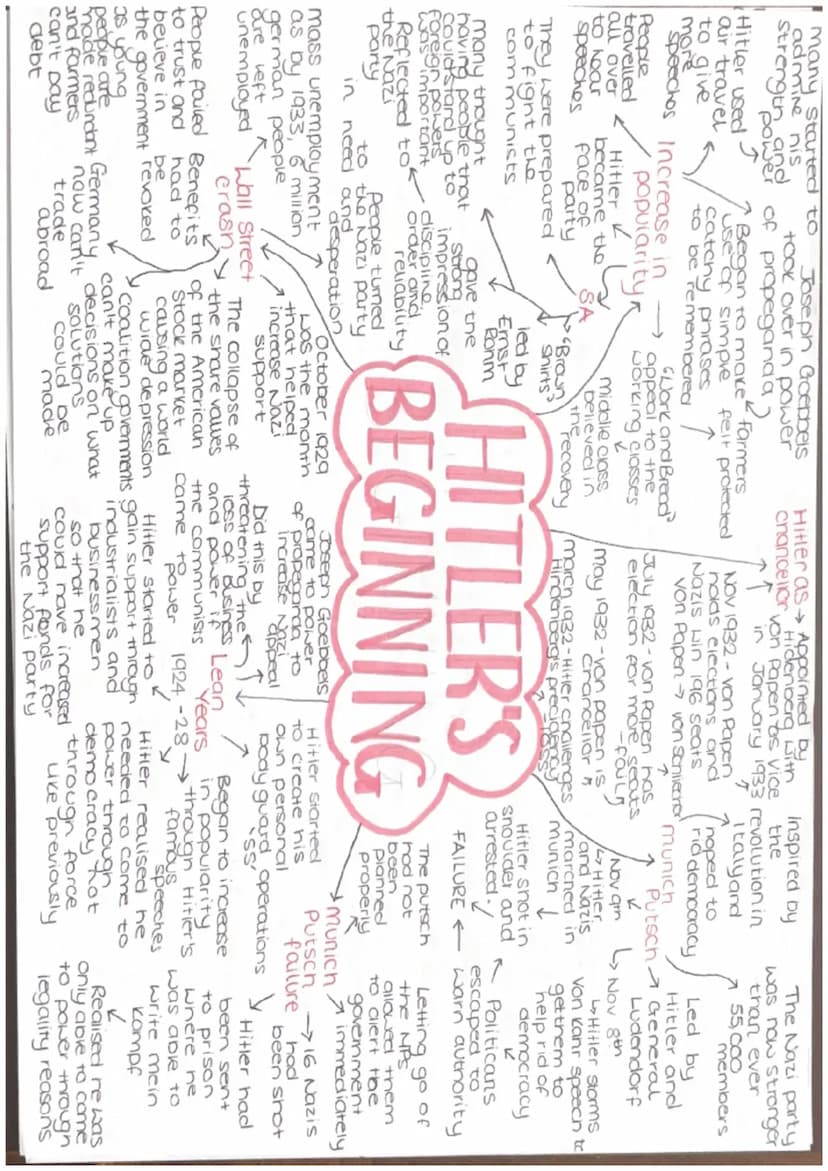 HITLER'S
BEGINNING
Increase in
popularity
many started to
admire his
strength and
power
Hitler used
air travel
to give
more
speeches
People
travelled
all over
to hear
speeches
Hitler
became the
face of
party
Joseph Goebbels
took over in power
of propeganda
Began to make
use of simple
catchy phrases
to be remembered
farmers
felt protected
"Work and Bread"
appeal to the
working classes
middle class
believed in
the
recovery
SA
"Brown
Shirts"
led by
Ernst
Rohm
They were prepared
to fight the
communists
gave the
strong
impression of
discipline,
order and
reliability
many thought
having people that
could stand up to
foreign powers
was important
Reflected to
the Nazi
party
Wall Street
crash
October 1929
was the month
that helped
increase Nazi
support
People turned
to the Nazi party
in need and
desperation
mass unemployment
as by 1933, 6 million
german people
are left
unemployed
People failed
to trust and
believe in
the government
as young
people are
made redundant
and farmers
can't pay
debt
Benefits
had to
be
revoked
Germany
now can't
trade
abroad
The collapse of
the share values
of the American
stock market
causing a world
wide depression
Coalition goverments
can't make up
decisions on what
solutions
could be
made
Hitler as
chancellor
Appointed by
Hidenberg with
von Papen as vice
in January 1933
Nov 1932 - von Papen
holds elections and
Nazis win 196 seats
von Papen → von Schleicher
July 1932 - von Papen has
election for more seats
- fail
may 1932 - von papen is
Chancellor
march 1932 - Hitler challenges
Hindenberg's presidency
- loss
Munich
Putsch
inspired by
the
revolution in
Italy and
hoped to
rid democracy
The Nazi party
was now stronger
than ever
55,000
members
Led by
Hitler and
General
Ludendorf
Nov 8th
Hitler storms
von Kahr speech to
get them to
help rid of
democracy
Politicans
escaped to
warn authority
Nov 9th
Hitler
and Nazis
marched in
munich
Hitler shot in
shoulder and
arrested.
FAILURE
Munich
Putsch
failure
The putsch
had not
been
planned
properly
Letting go of
the MPs
allowed them
to alert the
government
immediately
16 Nazis
had
been shot
Hitler had
been sent
to prison
where he
was able to
write mein
kampf
Realised he was
only able to come
to power through
legality reasons
Lean
Years
1924-28
Joseph Goebbels
came to power
of propaganda to
increase Nazi
appeal
Did this by
threatening the
loss of business
and power if
the communists
came to
power
Hitler started to
gain support through
industrialists and
businessmen
so that he
could have increased
support fonds for
the Nazi party
Hitler started
to create his
own personal
body guard operations
'SS'
Began to increase
in popularity
through Hitler's
famous
speeches
Hitler realised he
needed to come to
power through
democracy not
through force
like previously